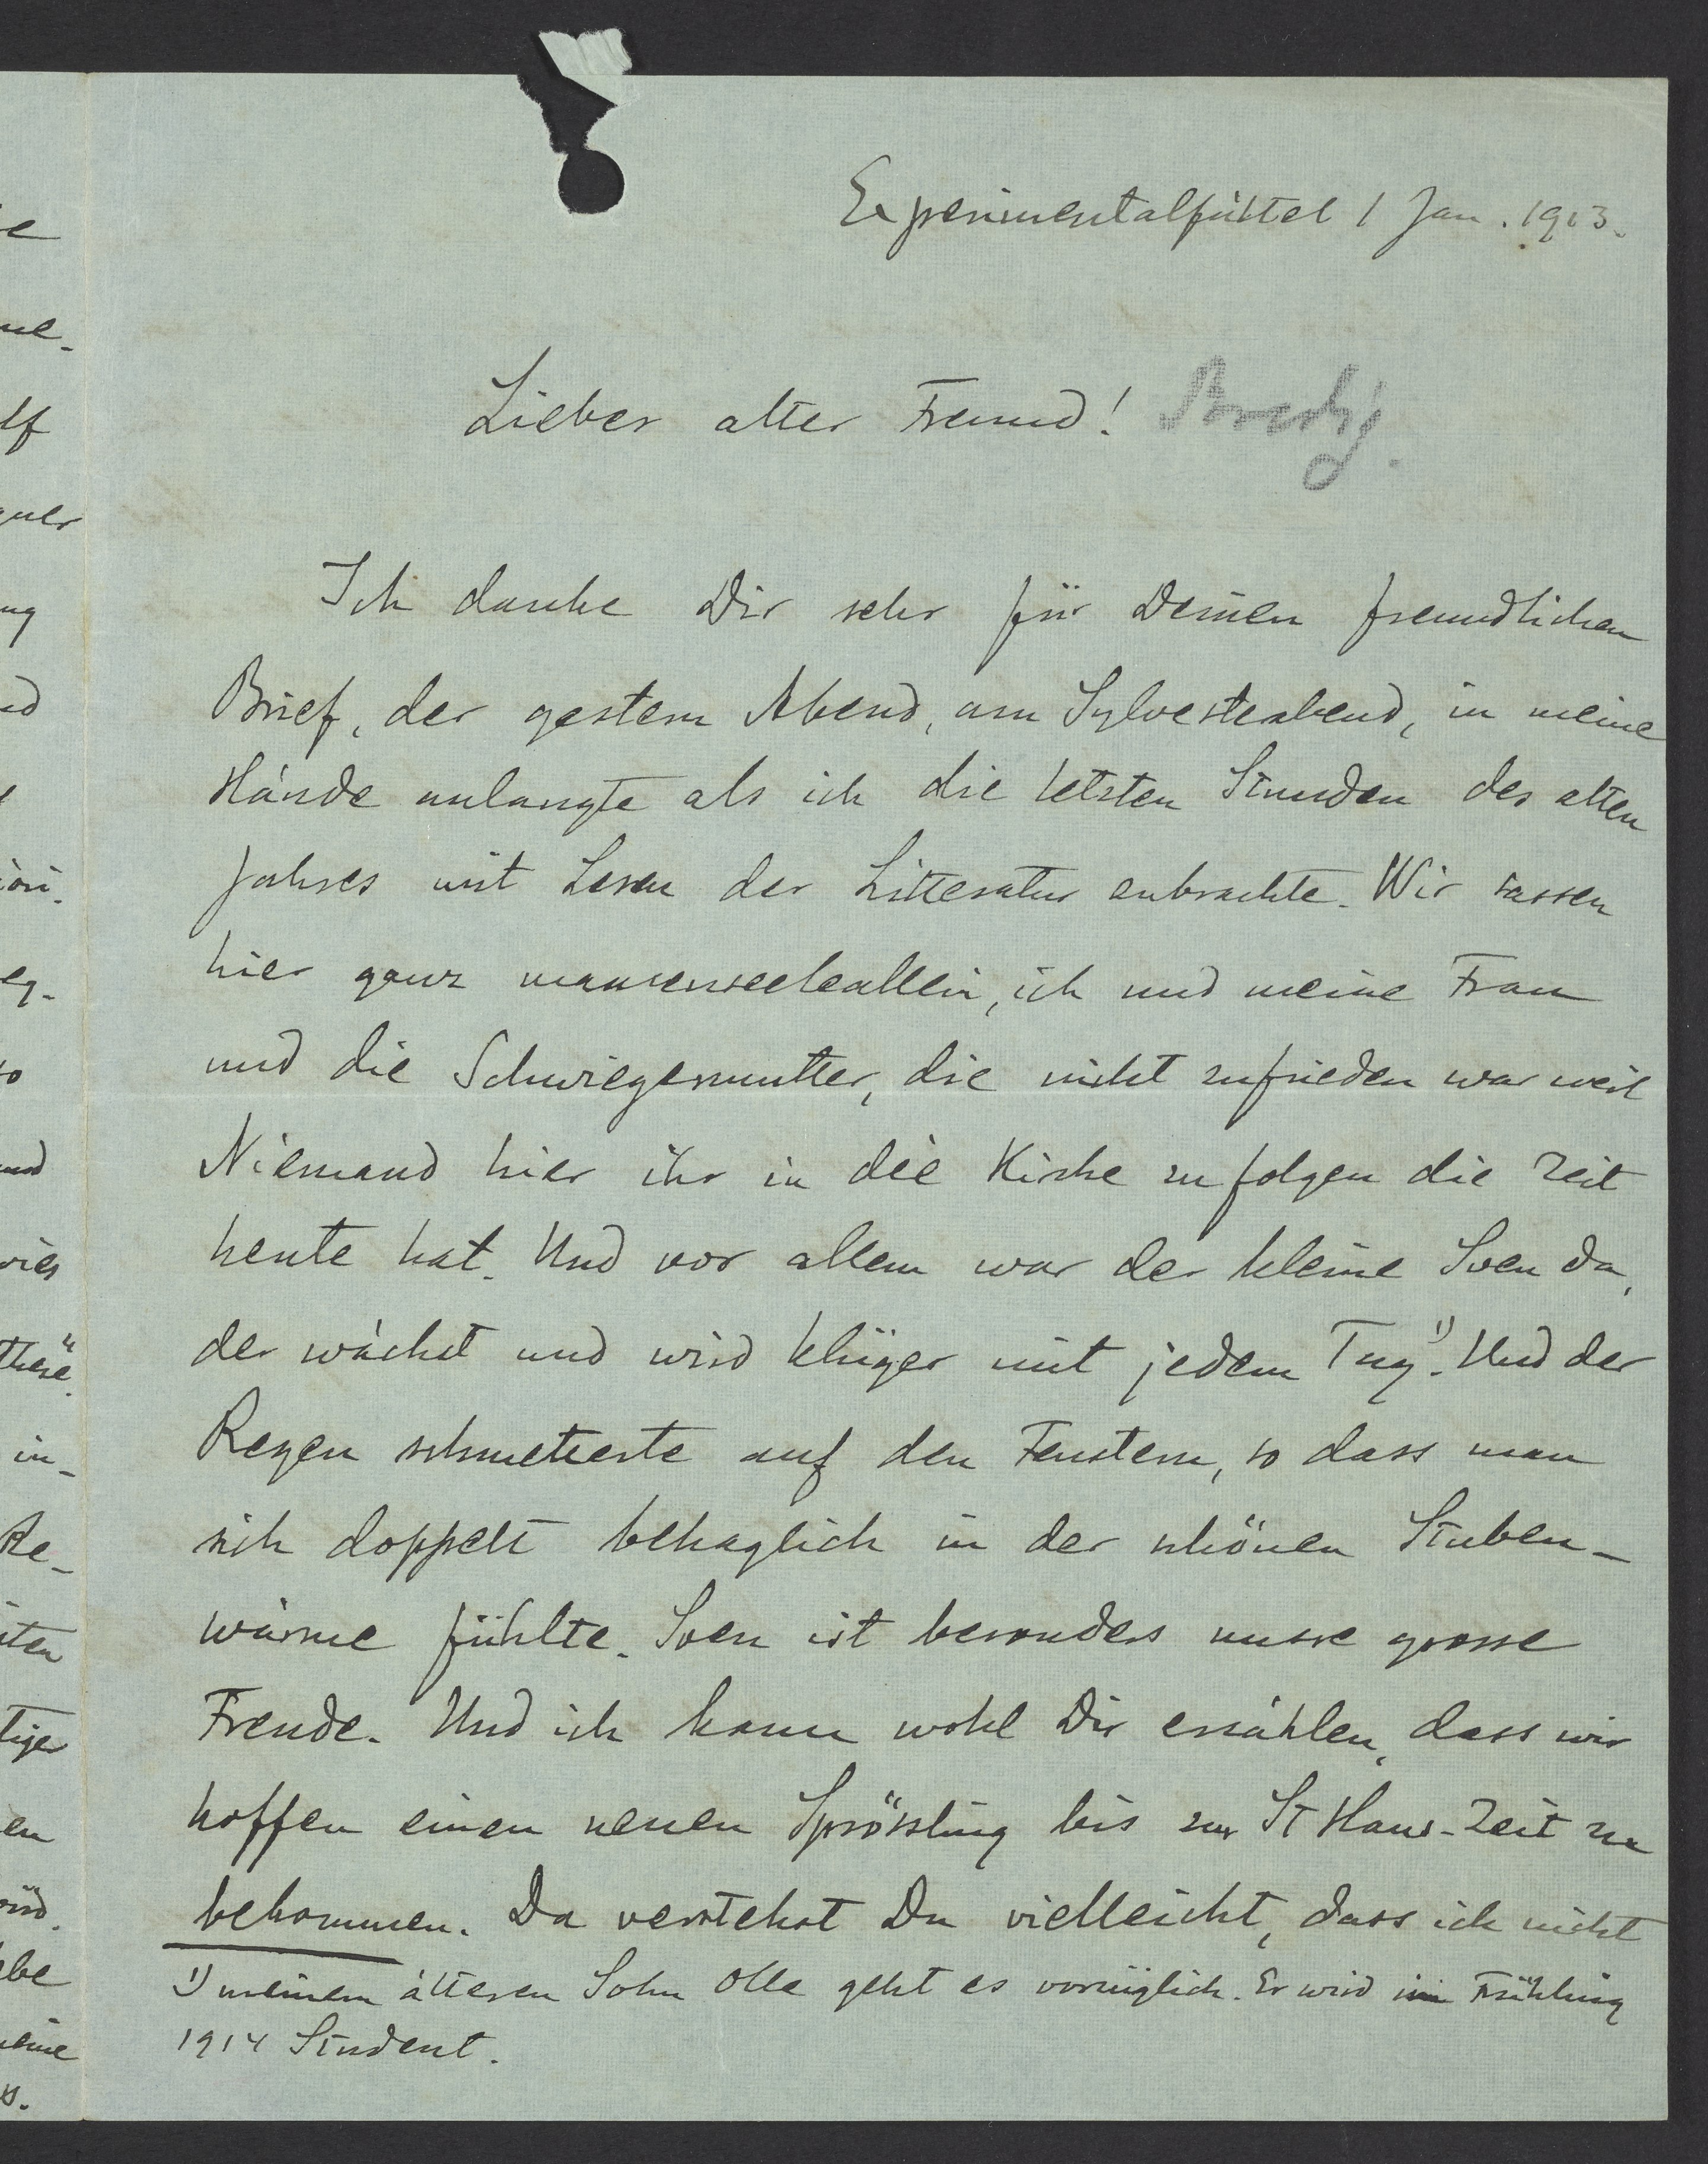 Experimentalfältet 1 Jan. 1913.
Lieber alter Freund! Bredig.
Ich danke Dir sehr für Deinen freundlichen
Brief, der gestern Abend, am Sylvesterabend, in meine
Hände anlangte als ich die letzten Stunden des alten
Jahres mit Lesen der Litteratur zubrachte. Wir sassen
hier ganz mausenseeleallein, ich und meine Frau
und die Schwiegermutter, die nicht zufrieden war weil
Niemand hier ihr in die Kirche zu folgen die Zeit
heute hat. Und vor allem war der kleine Sven da,
der wächst und wird klüger mit jedem Tag 1). Und der
Regen schmetterte auf den Fenstern, so dass man
sich doppelt behaglich in der schönen Stuben-
wärme fühlte. Sven ist besonders unsre grosse
Freude. Und ich kann wohl Dir erzählen, dass wir
hoffen einen neuen Sprössling bis zur St Hans-Zeit zu
bekommen. Da verstehst Du vielleicht, dass ich nicht
1) meinem älteren Sohn Olle geht es vorzüglich. Er wird im Frühling
1914 Student.